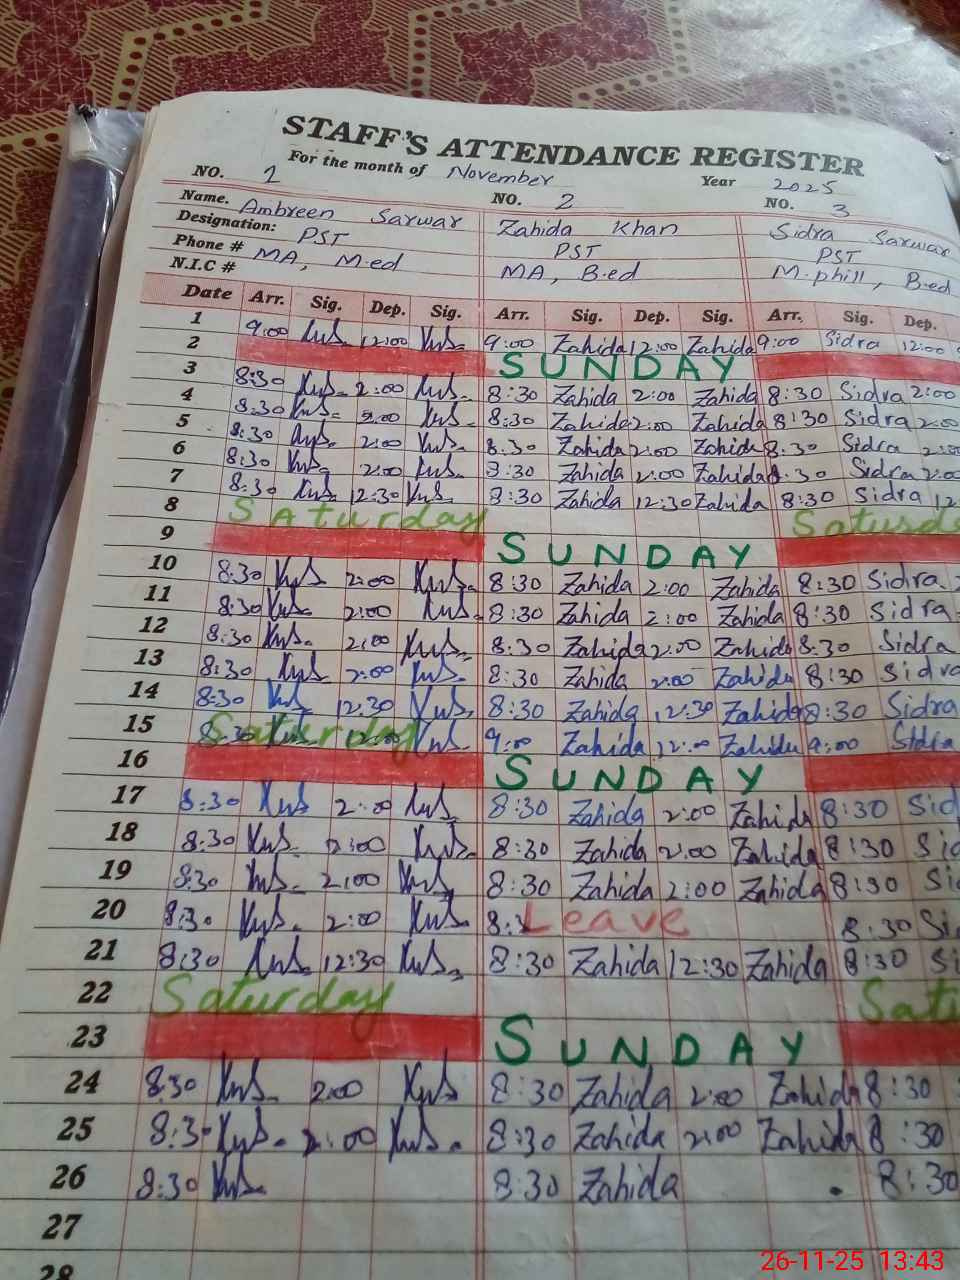 STAFF'S ATTENDANCE REGISTER
For the month of November Year 2025
NO. 1 NO. 2 NO. 3
Name. Ambreen Sarwar Zahida Khan Sidra Sarwar
Designation: PST PST PST
Phone # MA, M.ed MA, B.ed M.phill, B.ed
N.I.C #
Date Arr. Sig. Dep. Sig. Arr. Sig. Dep. Sig. Arr. Sig. Dep.
1 9:00 12:00 9:00 Zahida 12:00 Zahida 9:00 Sidra 12:00
2 SUNDAY
3 8:30 2:00 8:30 Zahida 2:00 Zahida 8:30 Sidra 2:00
4 8:30 2:00 8:30 Zahida 2:00 Zahida 8:30 Sidra 2:00
5 8:30 2:00 8:30 Zahida 2:00 Zahida 8:30 Sidra
6 8:30 2:00 8:30 Zahida 2:00 Zahida 8:30 Sidra 2:00
7 8:30 12:30 8:30 Zahida 12:30 Zahida 8:30 Sidra
8 Saturday
9 SUNDAY
10 8:30 2:00 8:30 Zahida 2:00 Zahida 8:30 Sidra
11 8:30 2:00 8:30 Zahida 2:00 Zahida 8:30 Sidra
12 8:30 2:00 8:30 Zahida 2:00 Zahida 8:30 Sidra
13 8:30 2:00 8:30 Zahida 2:00 Zahida 8:30 Sidra
14 8:30 12:30 8:30 Zahida 12:30 Zahida 8:30 Sidra
15 Saturday 9:00 Zahida 12:00 Zahida 9:00 Sidra
16 SUNDAY
17 8:30 2:00 8:30 Zahida 2:00 Zahida 8:30
18 8:30 2:00 8:30 Zahida 2:00 Zahida 8:30
19 8:30 2:00 8:30 Zahida 2:00 Zahida 8:30
20 8:30 2:00 Leave 8:30
21 8:30 12:30 8:30 Zahida 12:30 Zahida 8:30
22 Saturday
23 SUNDAY
24 8:30 2:00 8:30 Zahida 2:00 Zahida 8:30
25 8:30 2:00 8:30 Zahida 2:00 Zahida 8:30
26 8:30 8:30 Zahida 8:30
27
28
26-11-25 13:43